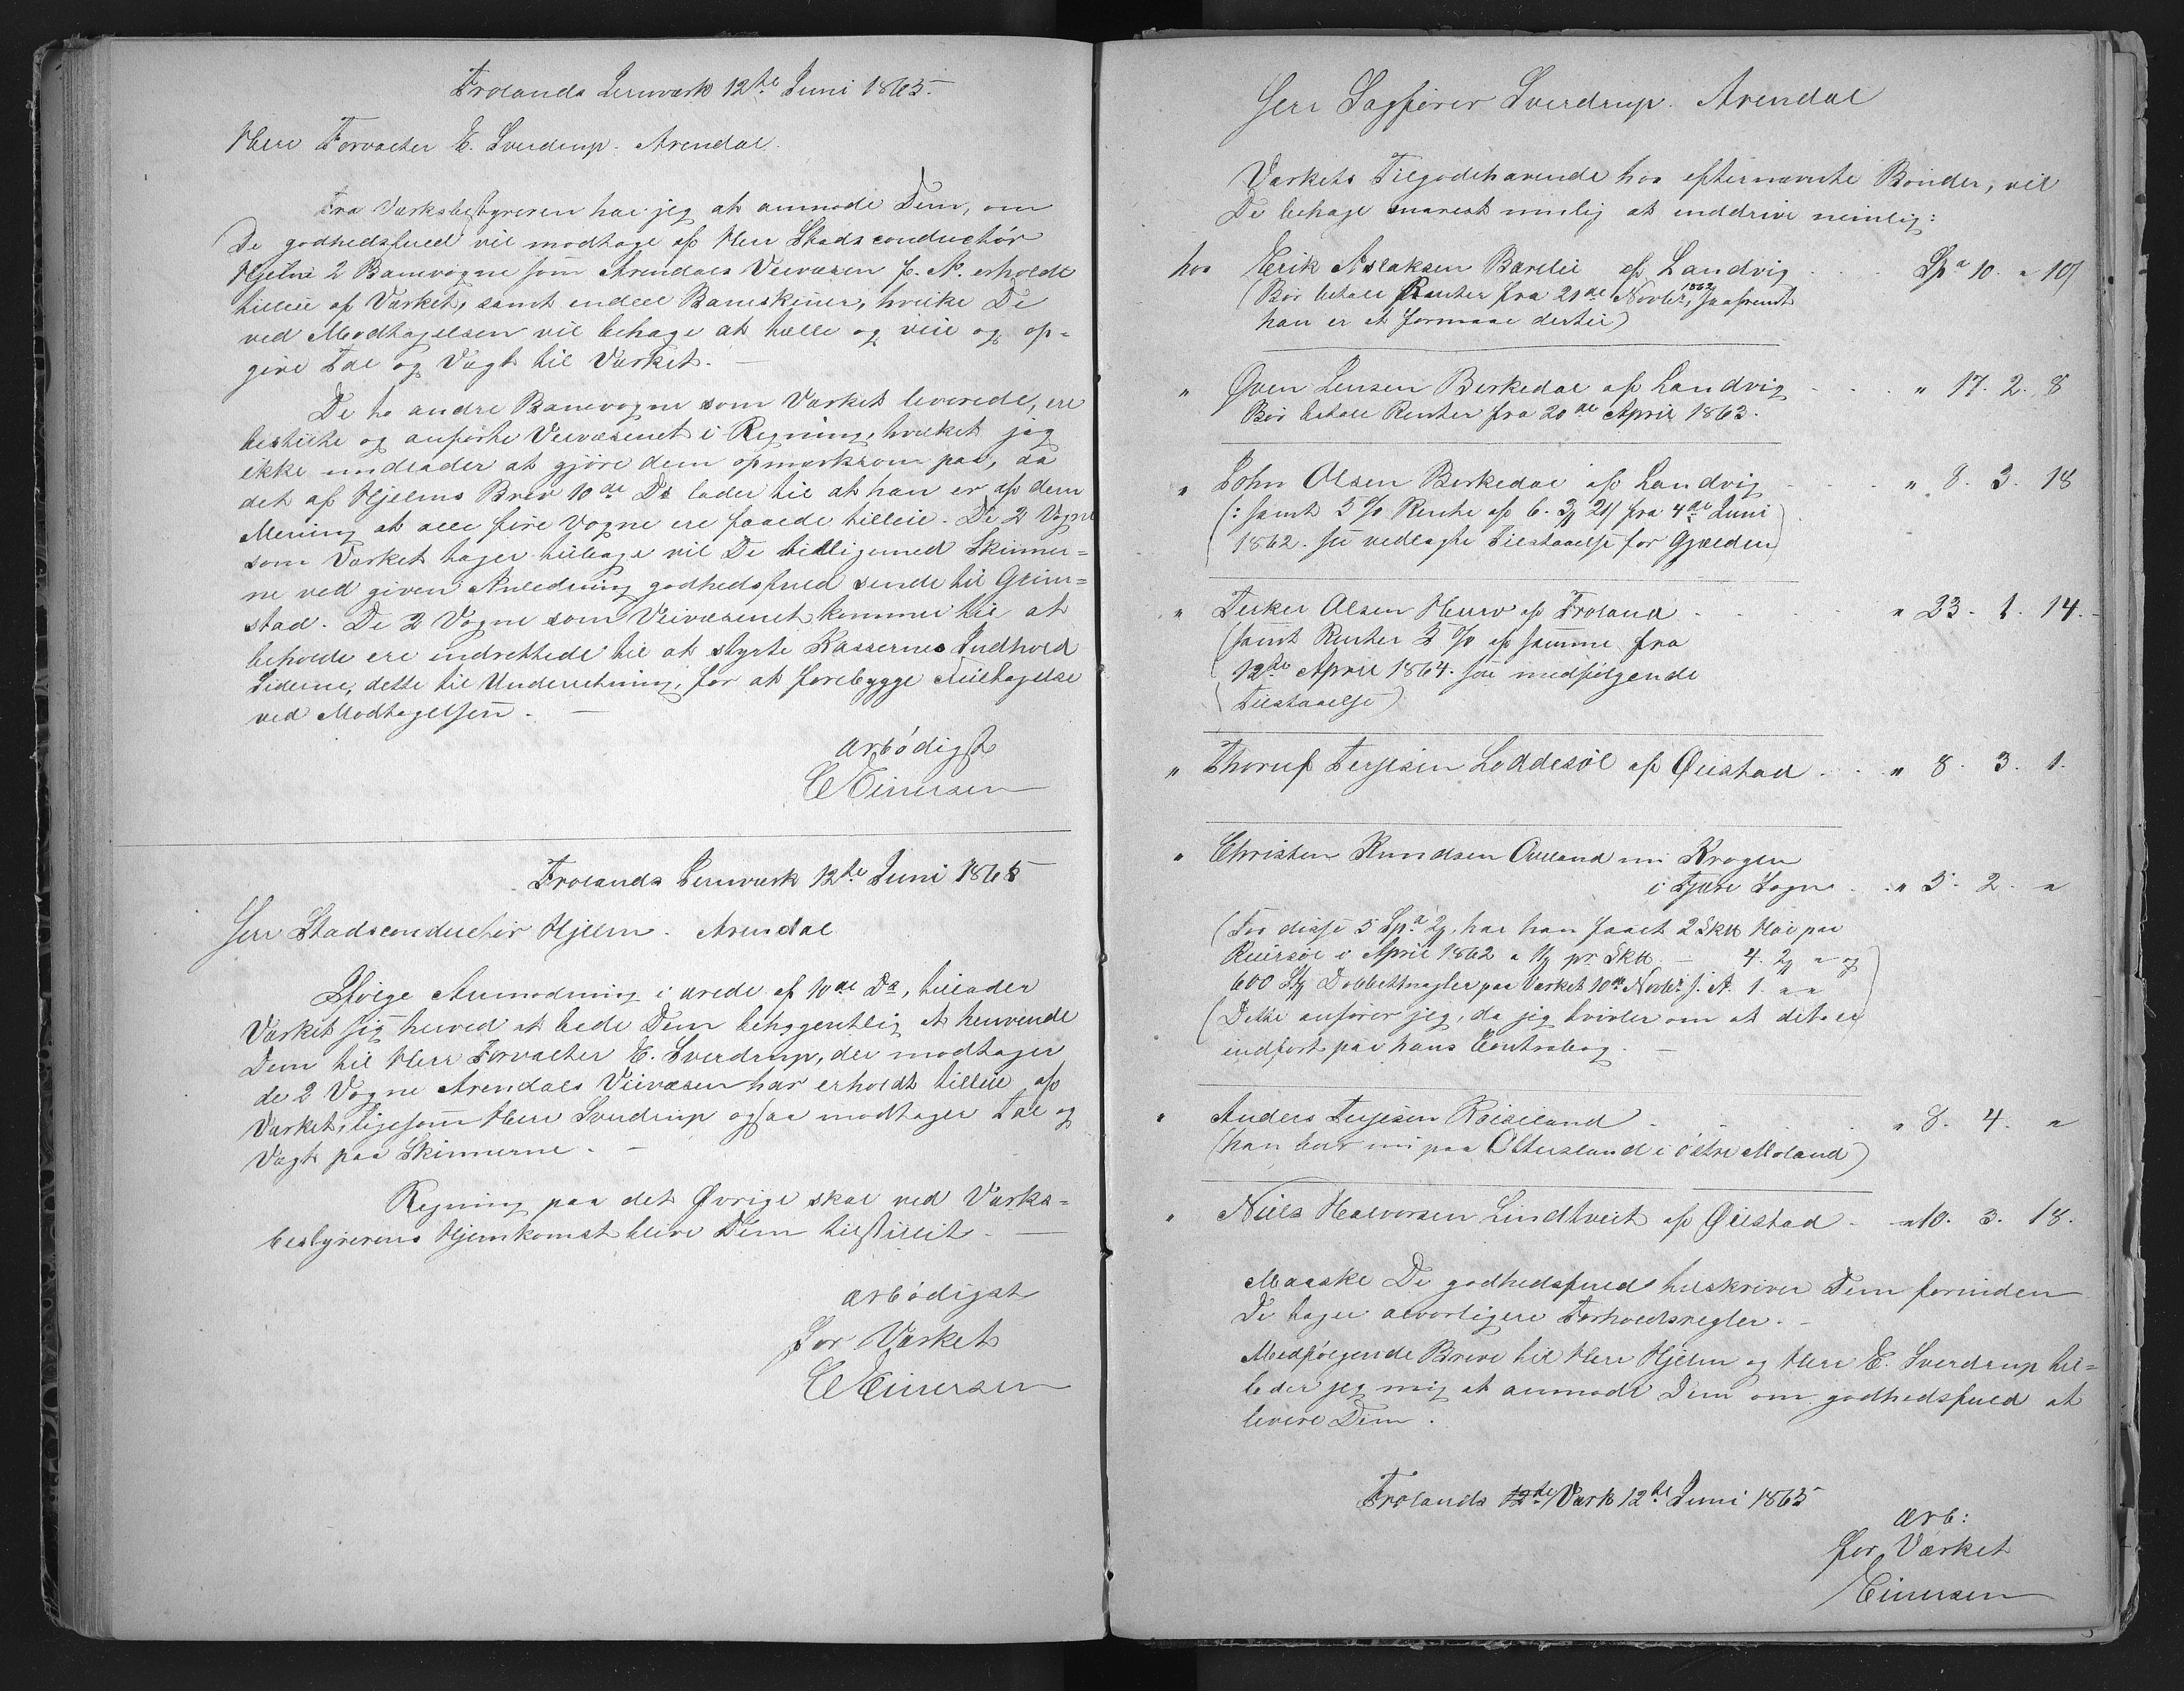 Frolands Jernværk 12te Juni 1865.
Herr Forvalter E. Sverdrup. Arendal.
Fra Værksbestyreren har jeg at anmode Dem, om
De godhedsfuld vil modtage af Herr Stadsconductør
Hjelm 2 Banevogne som Arendals Veivæsen f. A. erholdt
tilleie af Værket, samt endeel Baneskinner, hvilke De
ved Modtagelsen vil behage at tælle og veie og op-
give Tal og Vægt til Værket. —
De to andre Banevogne som Værket leverede, ere
bestilte og anførte Veivæsenet i Regning, hvilket jeg
ikke undlader at gjøre dem opmærksom paa, da
det af Hjelms Brev 10de Ds lader til at han er af dem
Mening at alle fire Vogne ere faaede tilleie. De 2 Vogne
som Værket tager tilbage vil De tilligemed Skinner-
ne ved given Anledning godhedsfuld sende til Grim-
stad. De 2 Vogne som Veivæsenet kommer til at
beholde ere indrettede til at styrte Kassernes Indhold
Siderne, dette til Underretning, for at forebygge Feiltagelse
ved Modtagelsen. —
ærbødigst
C Einersen
Frolands Jernværk 12te Juni 1865
Herr Stadsconductør Hjelm. Arendal
Ifølge Anmodning i ærede af 10de Ds, tillader
Værket sig herved at bede Dem behageligt at henvende
Dem til Herr Forvalter E. Sverdrup, der modtager
de 2 Vogne Arendals Veivæsen har erholdt tilleie af
Værket, ligesom Herr Sverdrup ogsaa modtager Tal og
Vægt paa Skinnerne. —
Regning paa det Øvrige skal ved Værks-
bestyrerens Hjemkomst blive Dem tilstillet. —
ærbødigst
for Værket
C Einersen
Herr Sagfører Sverdrup. Arendal
Værkets Tilgodehavende hos efternævnte Bønder, vil
De behage snarest mulig at inddrive nemlig:
hos Erik Aslaksen Barlie af Landvig . . . Spd 10. " 10
(Bør betale Renter fra 21de Novbr 1862, saafremt
han er at formaae dertil)
" Øven Jensen Birkedal af Landvig . . . " 17. 2. 8
Bør betale Renter fra 20de April 1863.
" John Olsen Birkedal af Landvig . . . " 8. 3. 18
(: samt 5 % Rente af 6. 3 21 fra 4de Juni
1862. see vedlagte Tilstaaelse for Gjælden)
" Terker Olsen Hurv af Froland . . . " 23. 1. 14.
(samt Renter 5 % af samme fra
12te April 1864. see medfølgende
Tilstaaelse)
" Thoruf Terjesen Loddesøl af Øiestad . . . " 8. 3. 1.
" Christen Knudsen Oveland nu Krogen
i Fjære Sogn . . " 5. 2. "
(For disse 5 Spd 2, har han faaet 2 Sk Høi paa
Reiersøl i April 1862 a pr Sk — 4. 2 " og
600 Stk Dobbeltnagler paa Værket 10de Novbr s. A. 1. " "
(Dette anfører jeg, da jeg tvivler om at det er
indført paa hans Contrabog. —
" Anders Terjesen Røiseland . . . " 8. 4. "
(han boer nu paa Ottersland i østre Moland)
" Niels Halvorsen Lindtveit af Øiestad . . " 10. 3. 18.
Maaske De godhedsfuld tilskriver Dem forinden
De tager alvorligere Forholdsregler. —
Medfølgende Breve til Herr Hjelm og Herr E. Sverdrup til-
lader jeg mig at anmode Dem om godhedsfuld at
levere Dem.
Frolands 12de Værk 12te Juni 1865
ærb:
for Værket
Einersen